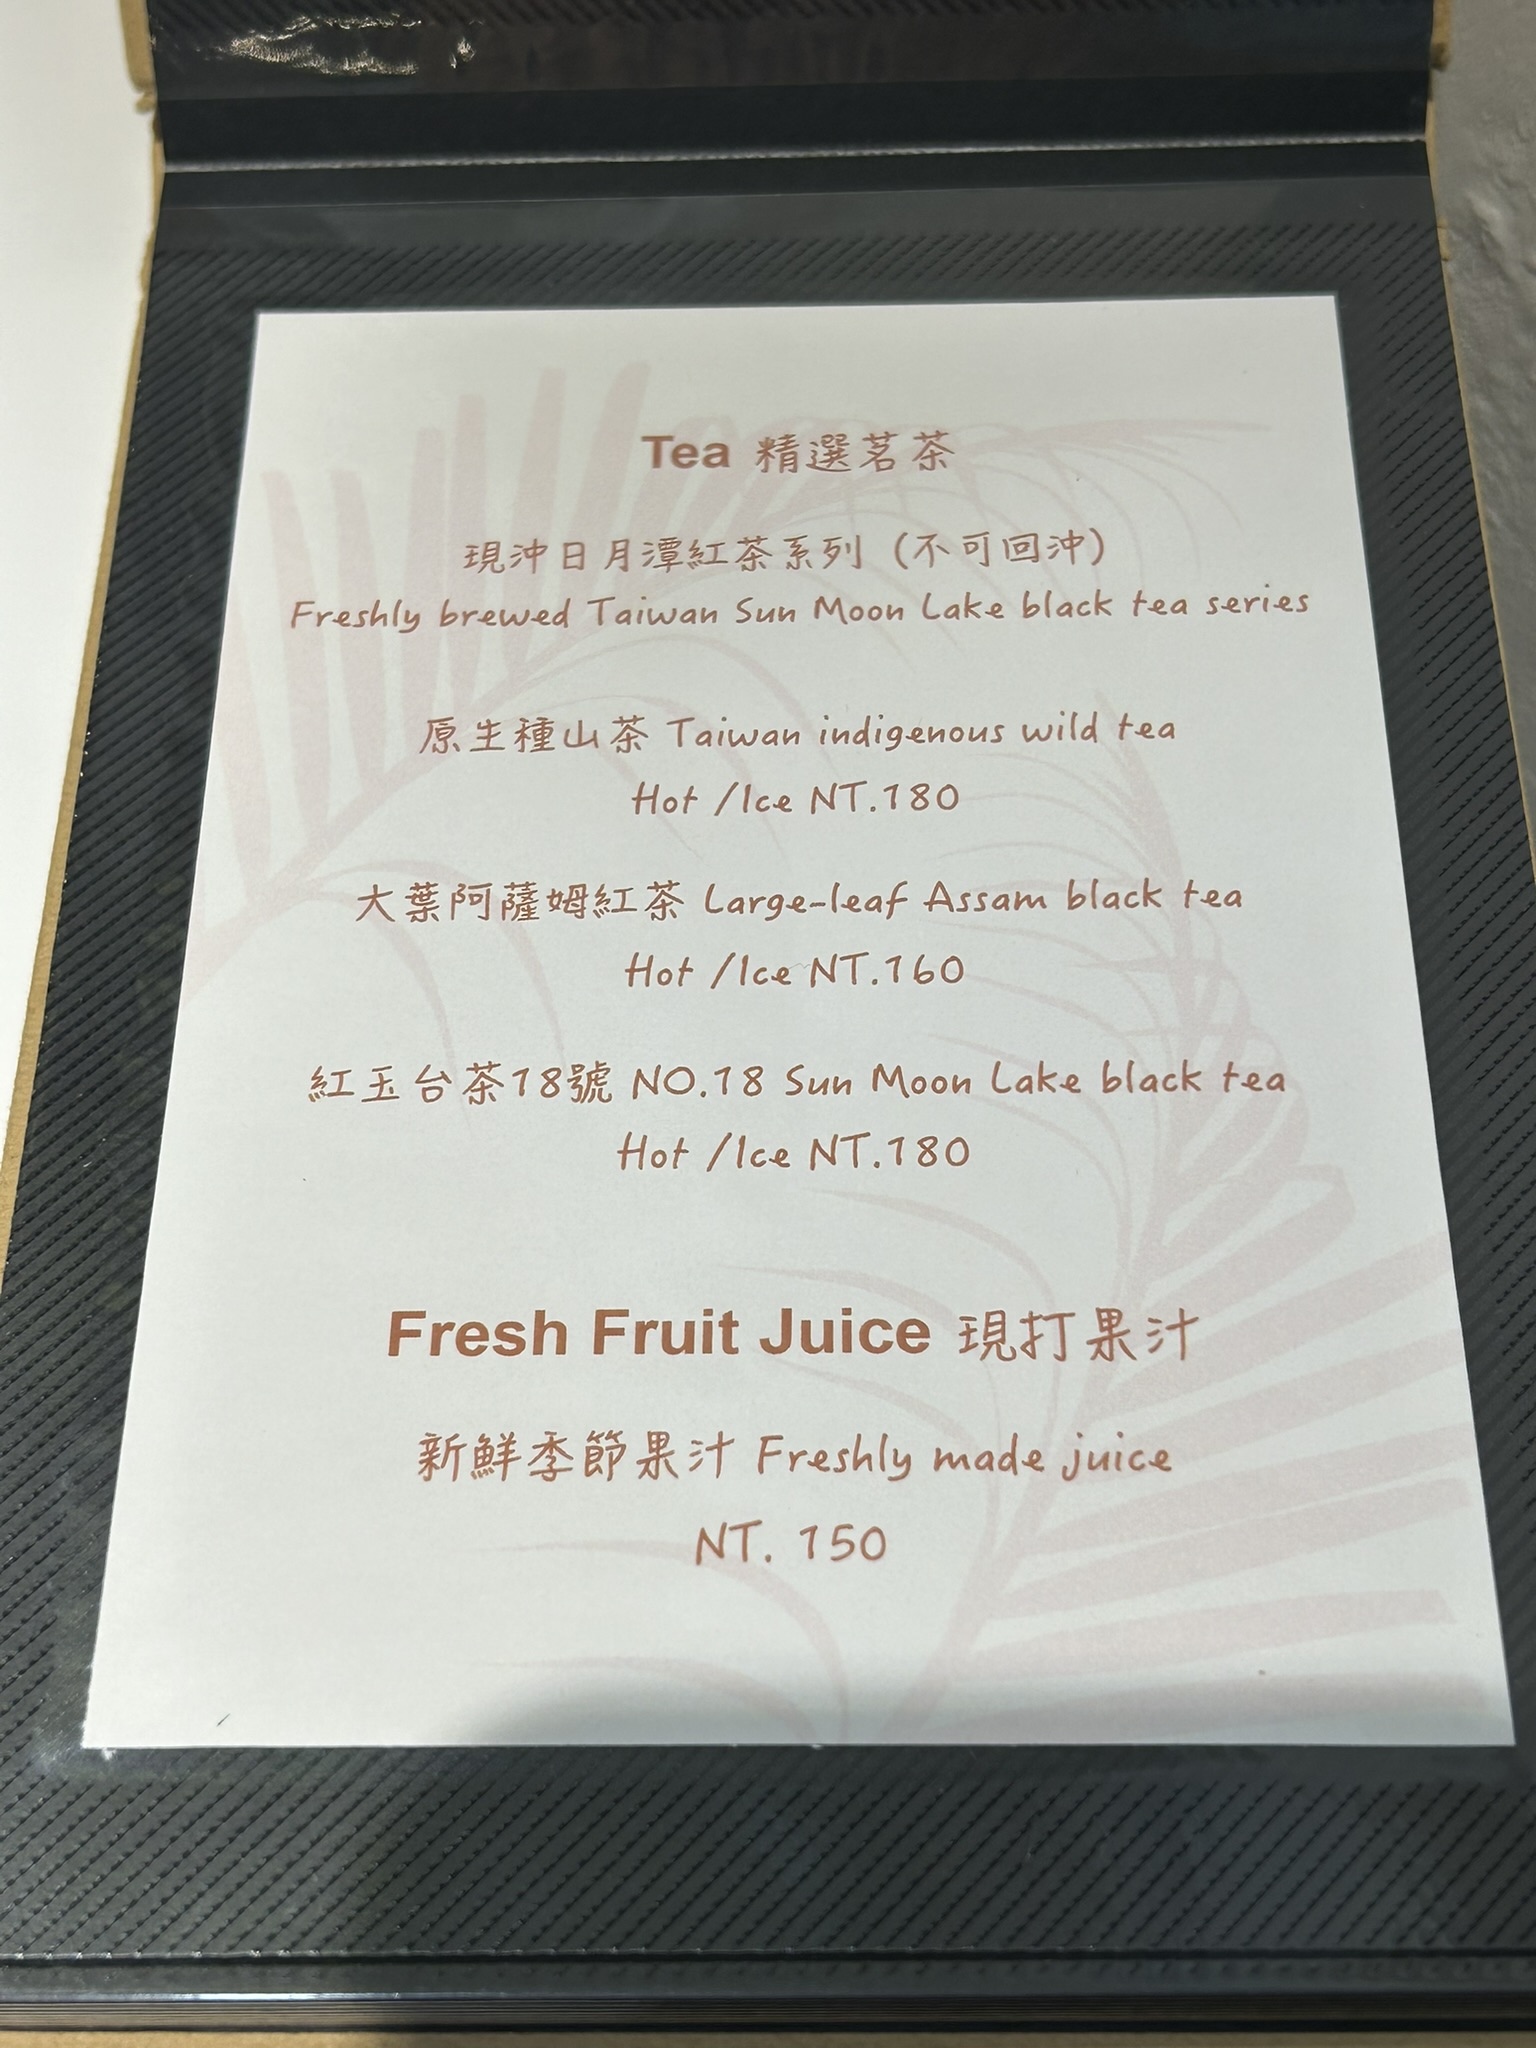 Tea 精選茗茶
現沖日月潭紅茶系列（不可回沖）
Freshly brewed Taiwan Sun Moon Lake black tea series
原生種山茶 Taiwan indigenous wild tea
Hot /Ice NT.180
大葉阿薩姆紅茶 Large-leaf Assam black tea
Hot /Ice NT.160
紅玉台茶18號 NO.18 Sun Moon Lake black tea
Hot /Ice NT.180
Fresh Fruit Juice 現打果汁
新鮮季節果汁 Freshly made juice
NT. 150